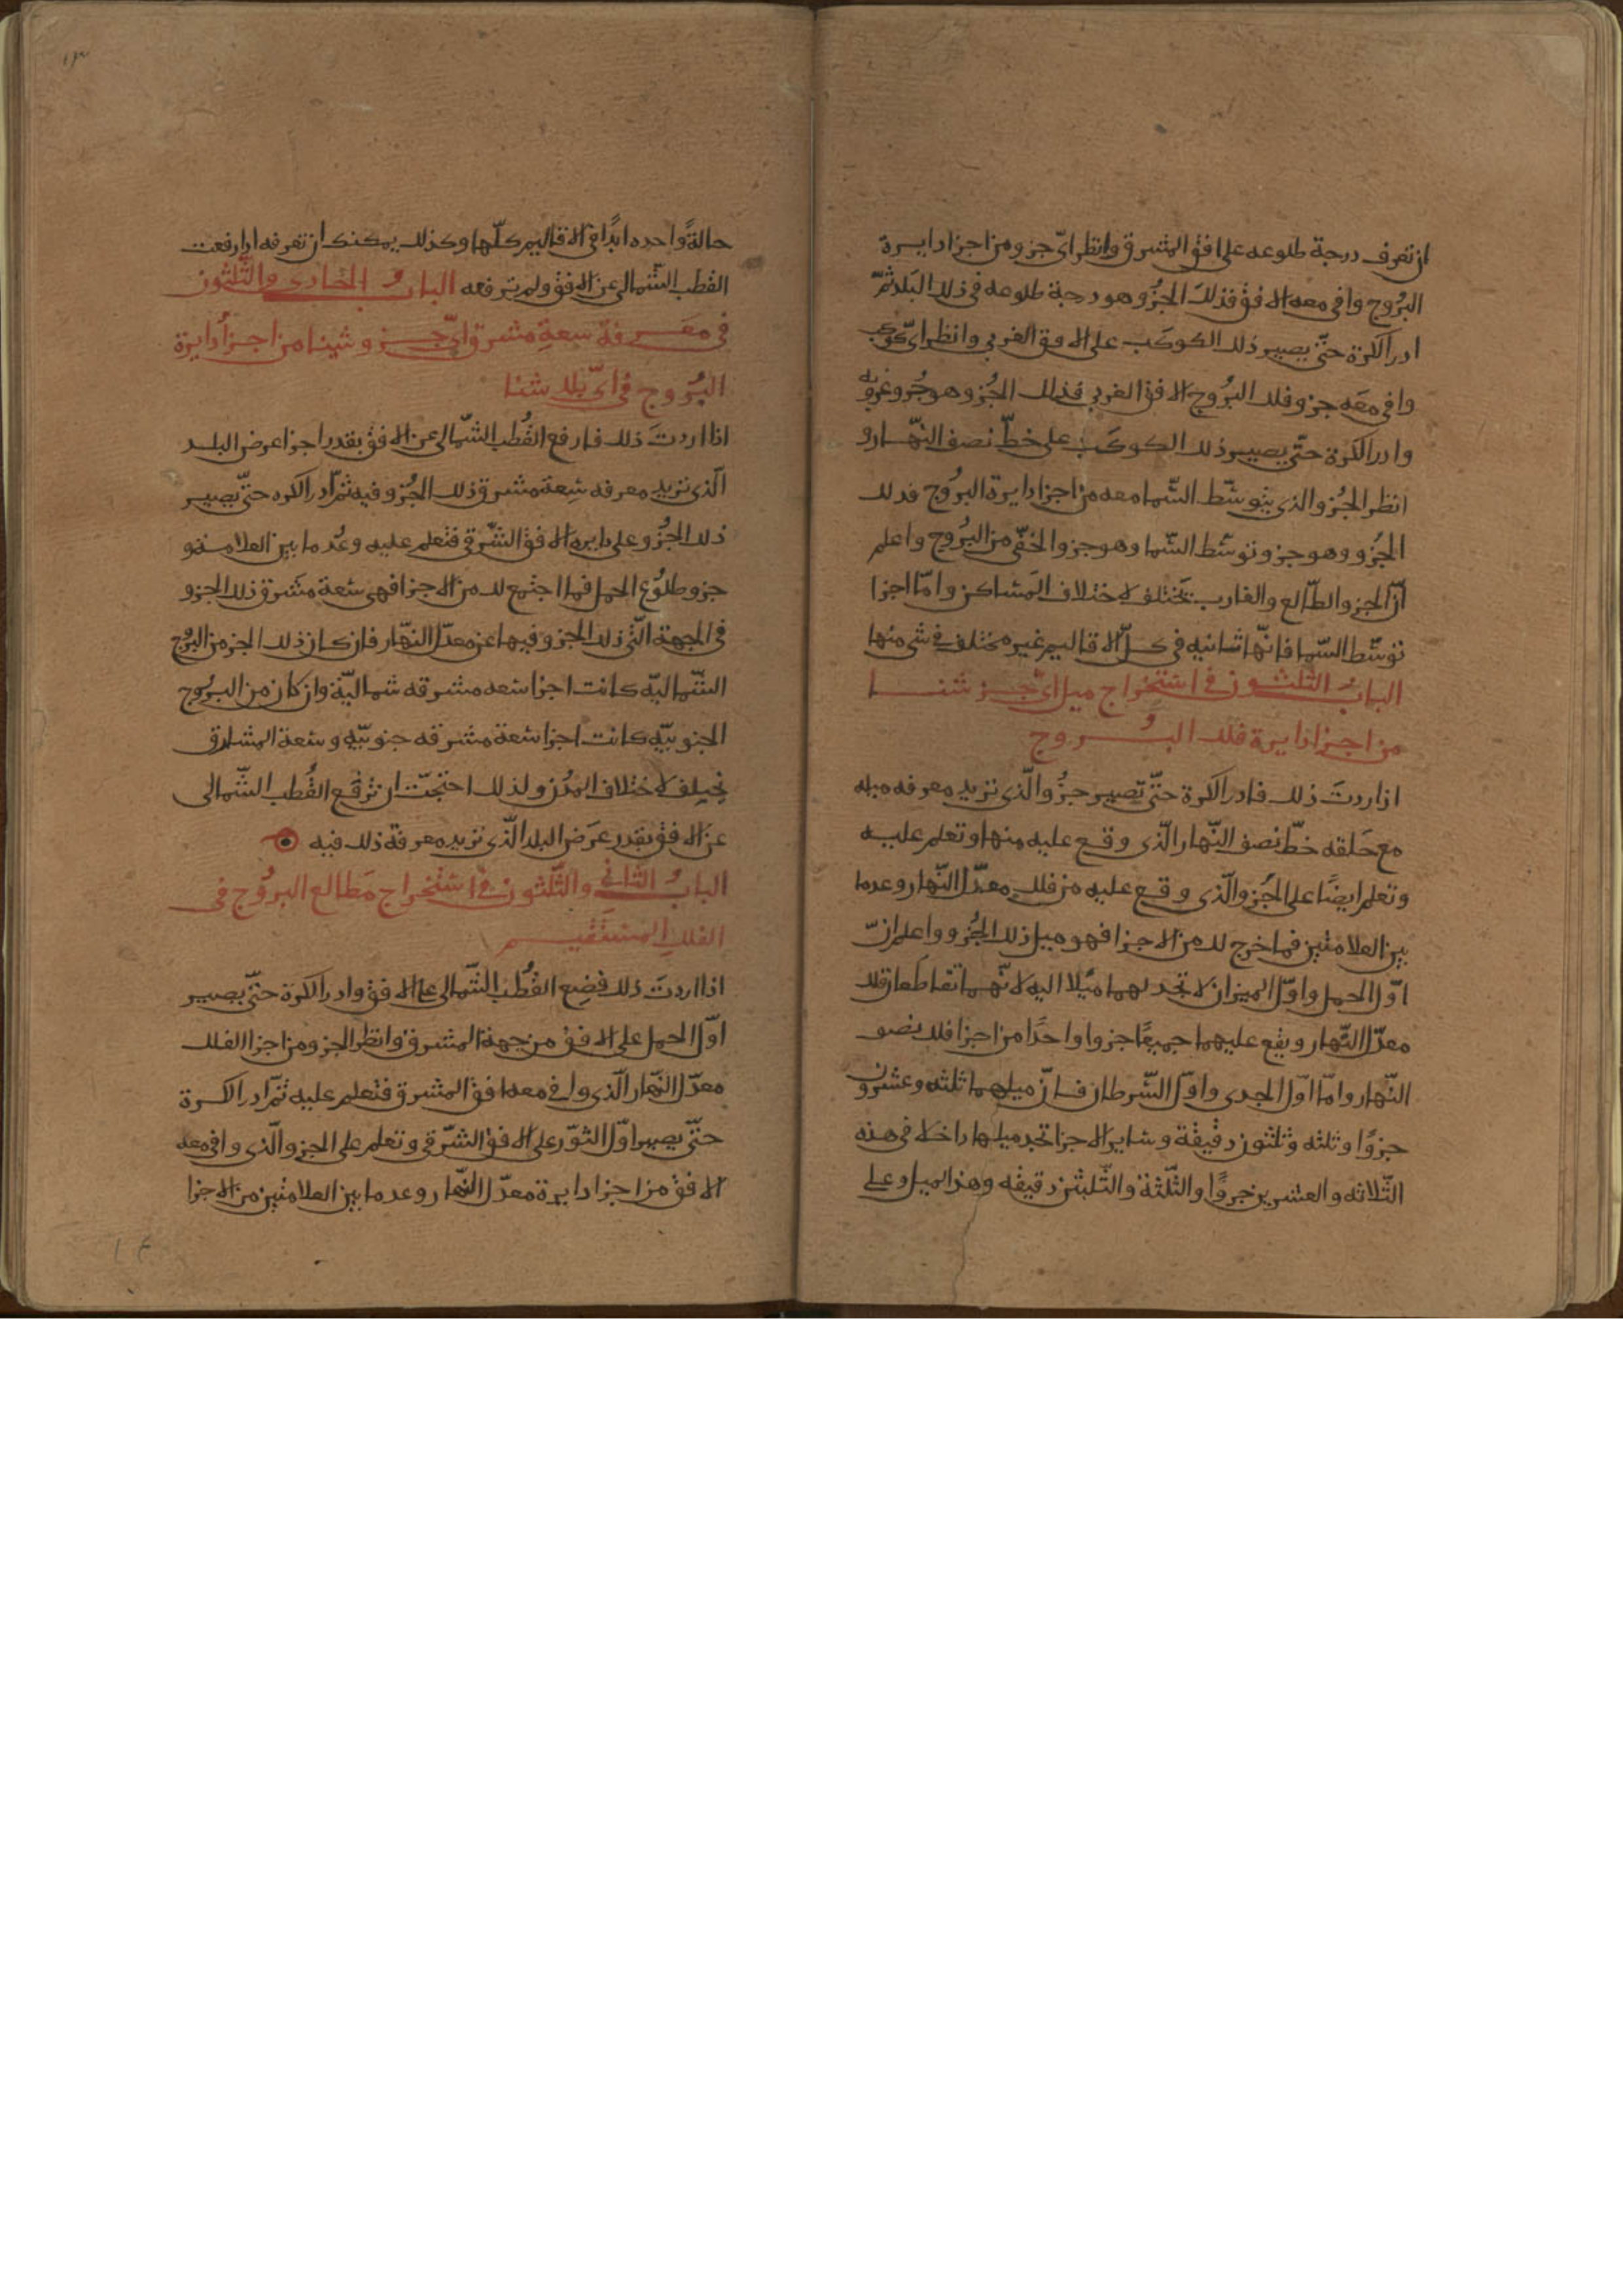 ان تعرف درجة طلوعه على افق المشرق وانظر اىّ جزو من اجزا دايرة
البرُوج وافى معه الافق فذلكَ الجزُو هو درجة طلوعه فى ذلك البَلد ثمّ
ادر الكرة حتّى يصيير ذلك الكوكَب على الافق الغربى وانظر اىّ
وافى معَه جزو فلك البرُوج الافق الغربى فذلك الجُزو هو جُزو غروبه
وادر الكرة حتّى يصيير ذلك الكوكَب على خطّ نصف النّهار و
انظر الجُزو الذى يتوسّط السّما معه من اجزا دايرة البرُوج فدلك
الجُزو وهو جزو توسّط السّما وهو جزو الخفّى من البُروج واعلم
انّ الجزو الطّالع والغارب تختلف لاختلاف المَساكن وامّا اجزا
توسّط السّما فانّها ثمانيه فى كلّ الاقاليم غير مختلف فى شى منها
البابُ الثلثون فى استخراج ميل اىّ جز شئنا
من اجزا دايرة فلك البُروج
اذا ردتَ ذلك فادر الكرة حتّى تصيير جزُو الّذى تريد معرفه ميله
مع حَلقه خطّ نصف النّهار الّذى وقع عليه منها وتعلم عليه
وتعلم ايضًا على الجُزو الّذى وقع عليه من فلك معدّل النّهار وعد ما
بين العلامتين فما خرج لك من الاجزا فهو ميل ذلك الجُزو واعلم انّ
اوّل الحمل واوّل الميزان لا تجد لهما ميَلا اليه لانّهما تقاطعان فلك
معدّل النّهار ويقع عليهما جميعًا جزوا واحدًا من اجزا فلك نصو
النّهار وامّا اوّل الجدى واوّل السّرطان فانّ ميلهما ثلثه وعشرون
جزوًا وثلثه وثلثون دقيقة وساير الاجزا تجد ميلها داخلا فى هذه
الثّلاثه والعشرين جروًا والثّلثة والثّلثين دقيقه وهذا الميل وعلى
حالةً واحده ابدًا فى الاقاليم كلّها وكذلك يمكنك ان تعرفه اذا رفعت
القطب الشّمالى عن الافق ولم ترفعه البابُ الحادى والثّلثون
فى معَرفة سعة مشرق اىّ جزو شينا من اجزا دايرة
البرُوج فى اىّ بلد شئنا
اذا اردتَ ذلك فارفع القُطب الشّمالى عن الافق بقدر اجزا عرض البلد
الّذى تريد معرفه سِعة مشرق ذلك الجُزو فيه ثمّ ادر الكره حتّى يصيير
ذلك الجزُو على دايره الافق الشّرقى فتعلم عليه وعُد ما بين العلامة و
جزو طلوُع الحمل فما اجتمع لك من الاجزا فهى سَعة مشَرق ذلك الجزو
فى الجهة الّتى ذلك الجزو فيها عن معدّل النّهار فان كان ذلك الجز من البرُوج
الشّماليّه كانت اجزا سعه مشرقه شماليّة وان كان من البرُوج
الجنوبيّه كانت اجزا سَعة مشرقه جنوبيّه وسَعة المشارق
تختلف لاختلاف المدُن ولذلك احتجت ان ترَفع القُطب الشّمالى
عن الافق بقدر عَرض البلد الّذى تريد معرفة ذلك فيه
البابُ الثانى والثّلثون فى استخراج مَطالع البرُوج فى
الفلك المستَقيم
اذا اردتَ ذلك فضِع القُطب الشّمالى على الافق وادر الكرة حتّى يصيير
اوّل الحمل على الافق من جهة المشرق وانظر الجزو من اجزا الفلك
معدّل النّهار الّذى وافى معه افق المشرق فتعلم عليه ثمّ ادر الكرة
حتّى يصيير اوّل الثوَر على الافق الشّرقى وتعلم على الجزو الّذى وافى معه
الافق من اجزا دايرة معدّل النّهار وعد ما بين العلامتين من الاجزا